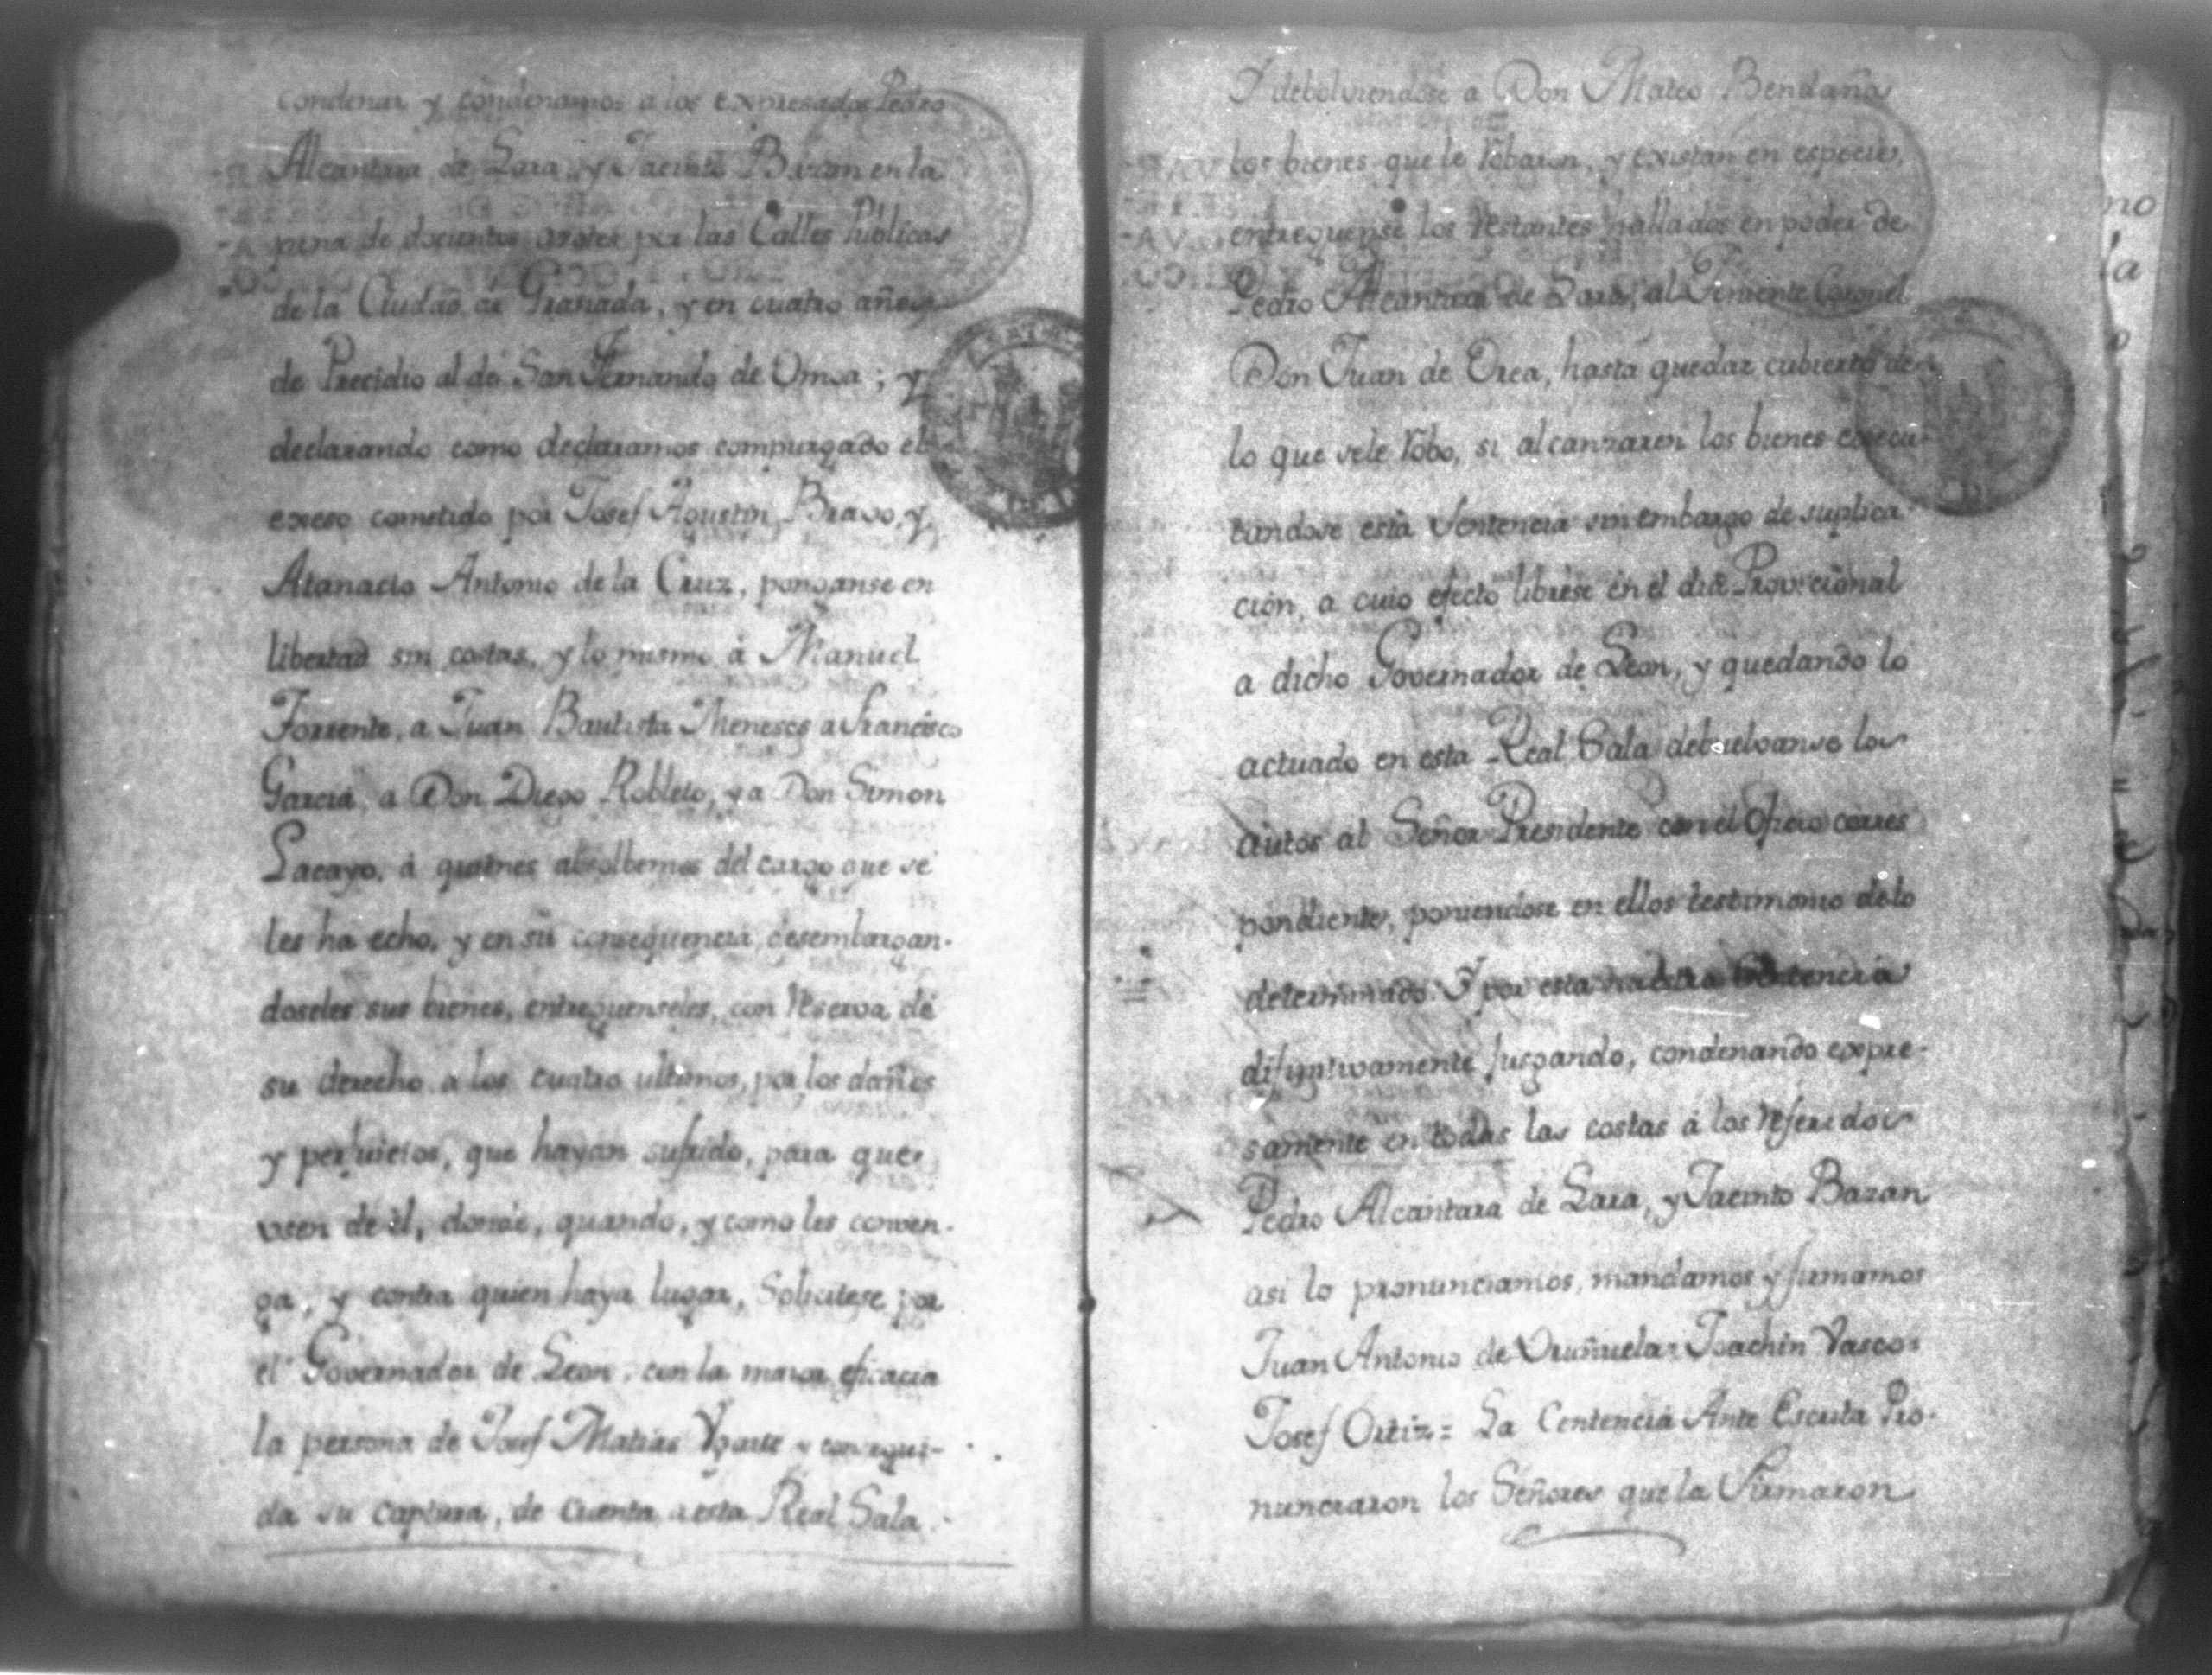 condenar y condenamos a los expresados Pedro
Alcantara de Lara, y Jacinto Bazan en la
pena de docientos azotes por las Calles Publicas
de la Ciudad de Granada, y en cuatro años
de Precidio al de San Fernando de Omoa; y
declarando como declaramos compurgado el
exeso cometido por Josef Agustin Bravo, y
Atanacio Antonio de la Cruz, ponganse en
libertad sin costas, y lo mismo á Manuel
Forrente, a Juan Bautista Meneses a Francisco
Garcia, a Don Diego Robleto, y a Don Simon
Lacayo, á quienes absolbemos del cargo que se
les ha echo, y en su consequencia, desembargan-
doseles sus bienes, entreguenseles, con reserva de
su derecho a los cuatro ultimos, por los daños
y perjuicios, que hayan sufrido, para que
usen de él, donde, quando, y como les conven-
ga, y contra quien haya lugar, Solicitese por
el Governador de Leon, con la maior eficacia
la persona de Josef Matias Ygarte y consegui-
da su captura, de cuenta a esta Real Sala.
Y debolviendose a Don Mateo Bendaña
los bienes que le robaron, y existan en especie,
entreguense los restantes hallados en poder de
Pedro Alcantara de Lara, al Teniente Coronel
Don Juan de Orea, hasta quedar cubierto de
lo que se le robo, si alcanzaren los bienes execu
tandose esta Sentencia sin embargo de suplica
ción, a cuio efecto librese en el dia Provicional
a dicho Governador de Leon, y quedando lo
actuado en esta Real Sala debuelvanse los
autos al Señor Presidente con el Oficio corres
pondiente, poniendose en ellos testimonio de lo
determinado. Y por esta nuestra Sentencia
difinitivamente juzgando, condenando expre-
samente en todas las costas á los referidos
Pedro Alcantara de Lara, y Jacinto Bazan
asi lo pronunciamos, mandamos y firmamos
Juan Antonio de Uruñuela= Joachin Vasco=
Josef Ortiz= La Centencia Ante Escrita Pro-
nunciaron los Señores que la Firmaron
no
la